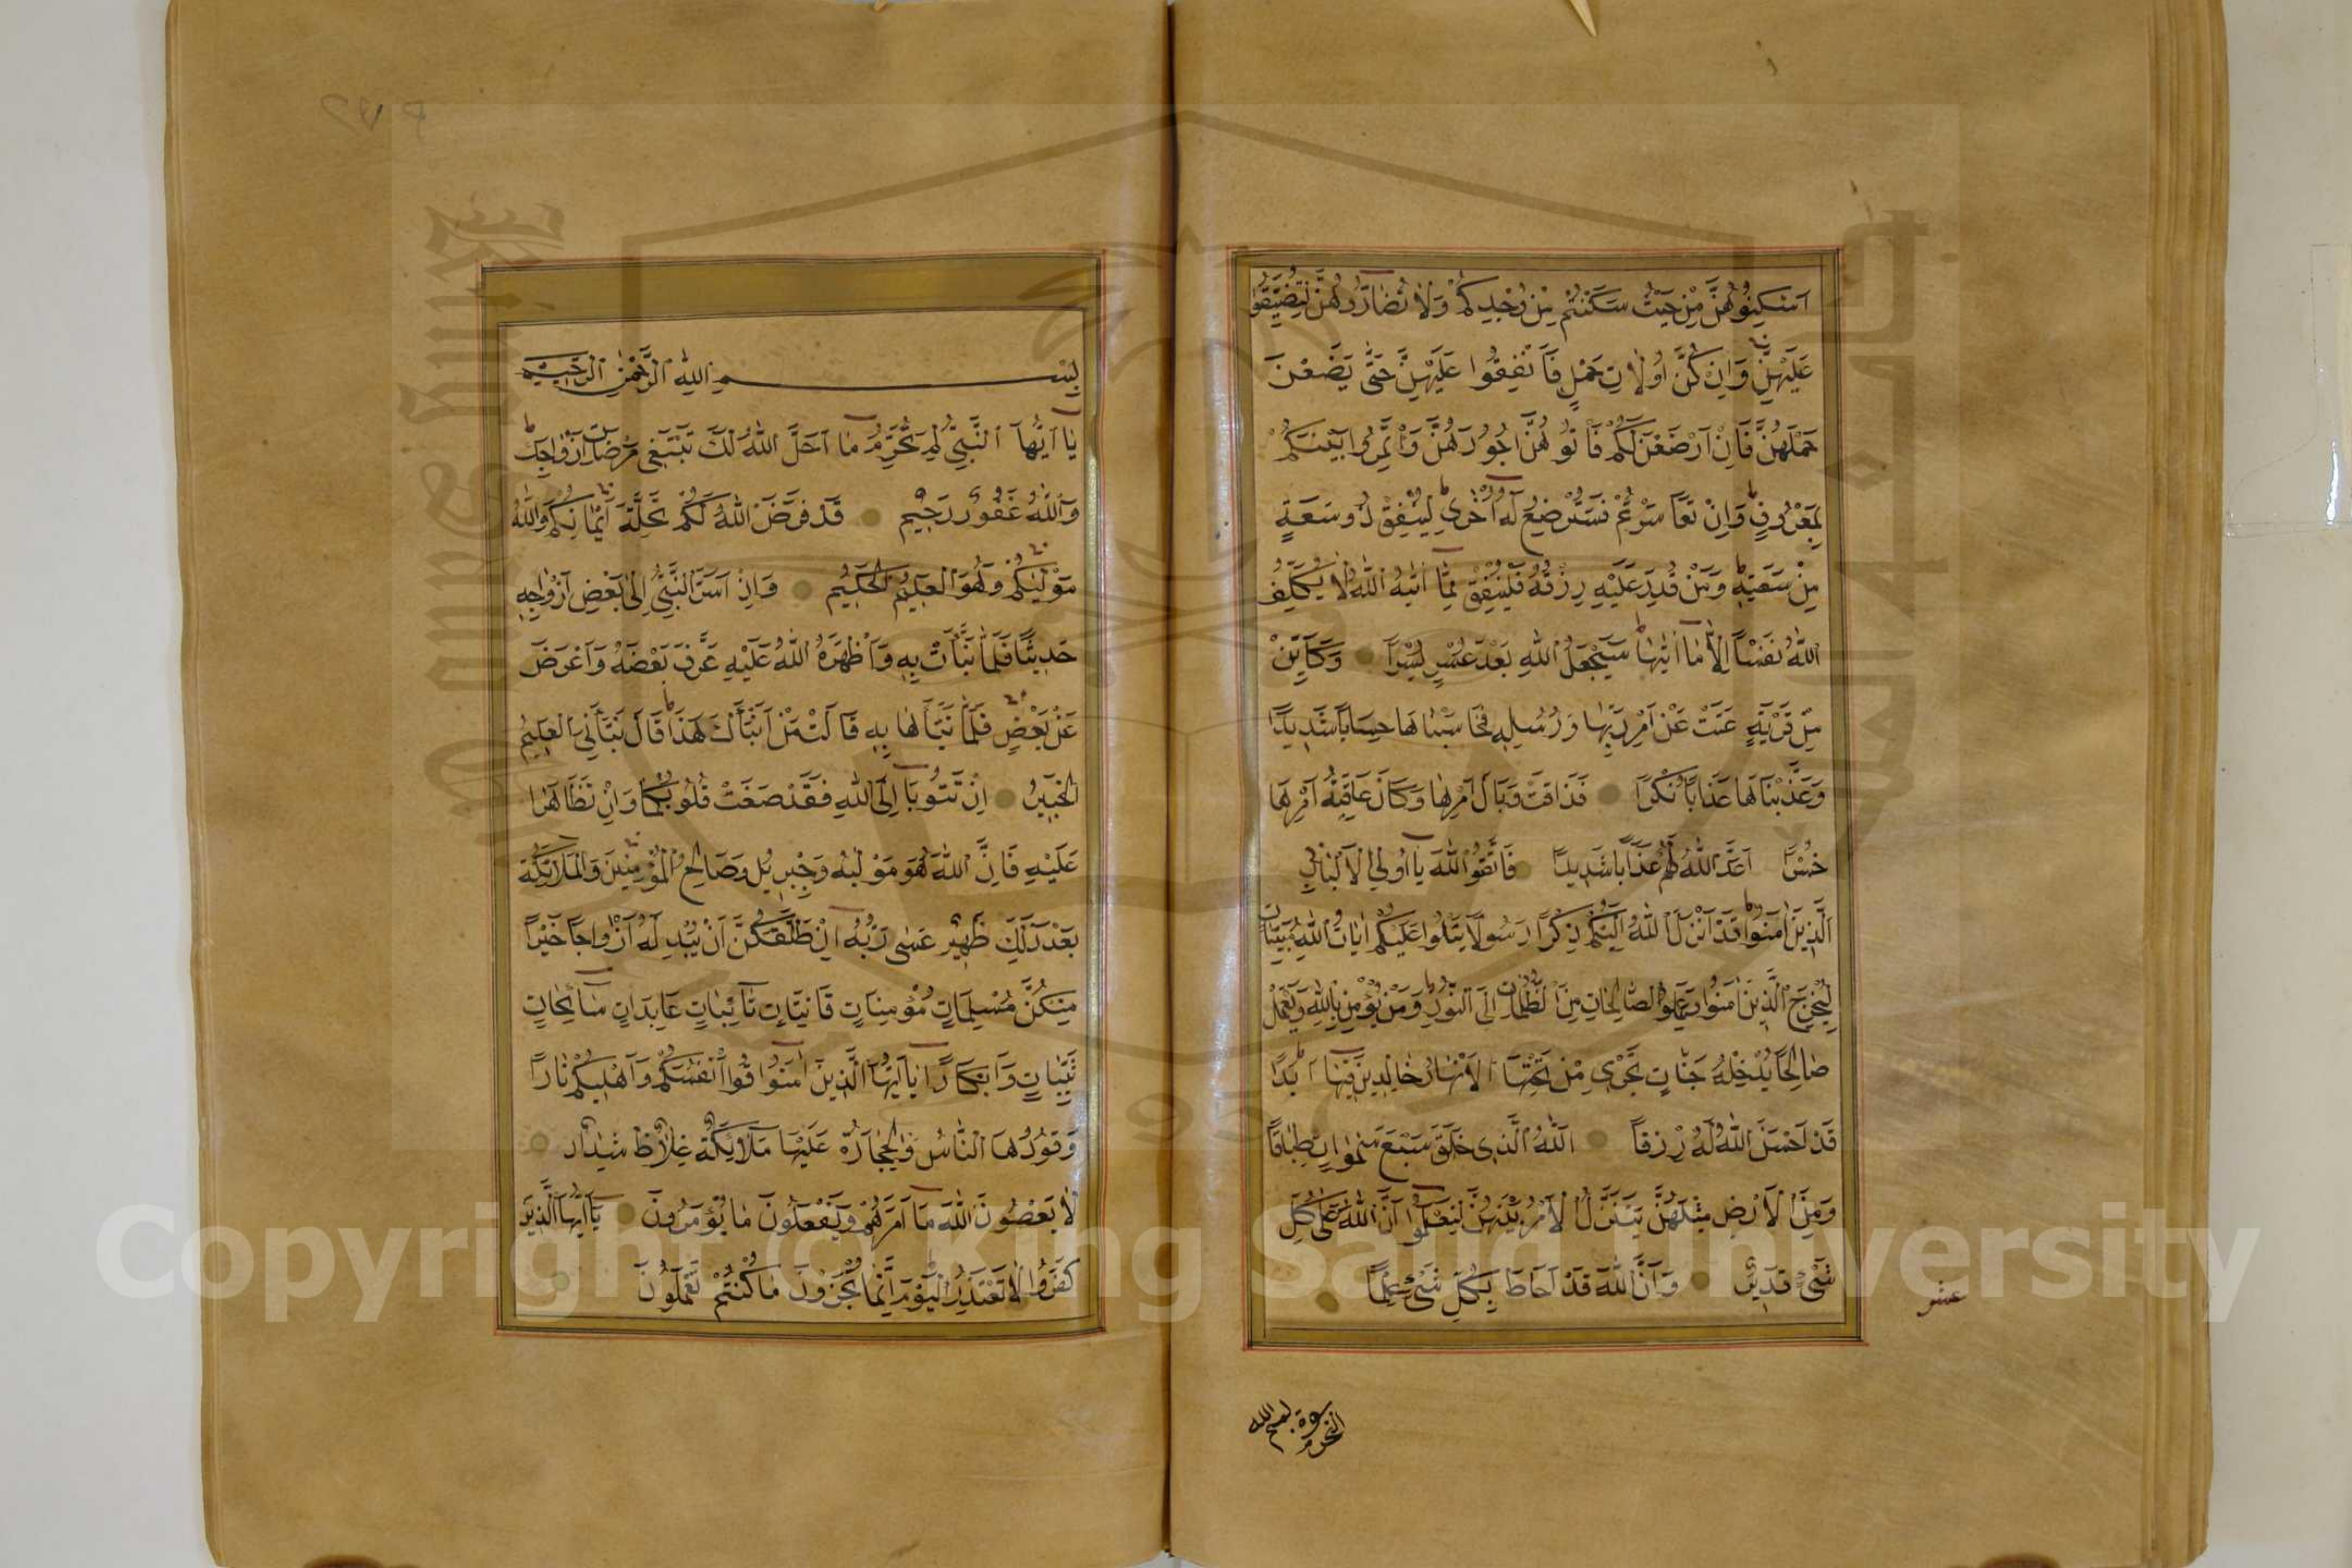 اَسْكِنُوهُنَّ مِنْ حَيْثُ سَكَنْتُمْ مِنْ وُجْدِكُمْ وَلَا تُضَارُّوهُنَّ لِتُضَيِّقُوا
عَلَيْهِنَّ وَاِنْ كُنَّ اُولَاتِ حَمْلٍ فَاَنْفِقُوا عَلَيْهِنَّ حَتَّى يَضَعْنَ
حَمْلَهُنَّ فَاِنْ اَرْضَعْنَ لَكُمْ فَاٰتُوهُنَّ اُجُورَهُنَّ وَأْتَمِرُوا بَيْنَكُمْ
بِمَعْرُوفٍ وَاِنْ تَعَاسَرْتُمْ فَسَتُرْضِعُ لَهُ اُخْرٰى لِيُنْفِقْ ذُو سَعَةٍ
مِنْ سَعَتِهِ وَمَنْ قُدِرَ عَلَيْهِ رِزْقُهُ فَلْيُنْفِقْ مِمَّا اٰتٰيهُ اللّٰهُ لَا يُكَلِّفُ
اللّٰهُ نَفْسًا اِلَّا مَا اٰتٰيهَا سَيَجْعَلُ اللّٰهُ بَعْدَ عُسْرٍ يُسْرًا وَكَاَيِّنْ
مِنْ قَرْيَةٍ عَتَتْ عَنْ اَمْرِ رَبِّهَا وَرُسُلِهِ فَحَاسَبْنَاهَا حِسَابًا شَدِيدًا
وَعَذَّبْنَاهَا عَذَابًا نُكْرًا فَذَاقَتْ وَبَالَ اَمْرِهَا وَكَانَ عَاقِبَةُ اَمْرِهَا
خُسْرًا اَعَدَّ اللّٰهُ لَهُمْ عَذَابًا شَدِيدًا فَاتَّقُوا اللّٰهَ يَا اُولِي الْاَلْبَابِ
اَلَّذِينَ اٰمَنُوا قَدْ اَنْزَلَ اللّٰهُ اِلَيْكُمْ ذِكْرًا رَسُولًا يَتْلُوا عَلَيْكُمْ اٰيَاتِ اللّٰهِ مُبَيِّنَاتٍ
لِيُخْرِجَ الَّذِينَ اٰمَنُوا وَعَمِلُوا الصَّالِحَاتِ مِنَ الظُّلُمَاتِ اِلَى النُّورِ وَمَنْ يُؤْمِنْ بِاللّٰهِ وَيَعْمَلْ
صَالِحًا يُدْخِلْهُ جَنَّاتٍ تَجْرِى مِنْ تَحْتِهَا الْاَنْهَارُ خَالِدِينَ فِيهَا اَبَدًا
قَدْ اَحْسَنَ اللّٰهُ لَهُ رِزْقًا اَللّٰهُ الَّذِى خَلَقَ سَبْعَ سَمٰوَاتٍ طِبَاقًا
وَمِنَ الْاَرْضِ مِثْلَهُنَّ يَتَنَزَّلُ الْاَمْرُ بَيْنَهُنَّ لِتَعْلَمُوا اَنَّ اللّٰهَ عَلٰى كُلِّ
شَىْءٍ قَدِيرٌ وَاَنَّ اللّٰهَ قَدْ اَحَاطَ بِكُلِّ شَىْءٍ عِلْمًا
عشر
بسم الله
بِسْمِ اللّٰهِ الرَّحْمٰنِ الرَّحِيمِ
يَا اَيُّهَا النَّبِيُّ لِمَ تُحَرِّمُ مَا اَحَلَّ اللّٰهُ لَكَ تَبْتَغِى مَرْضَاتَ اَزْوَاجِكَ
وَاللّٰهُ غَفُورٌ رَحِيمٌ قَدْ فَرَضَ اللّٰهُ لَكُمْ تَحِلَّةَ اَيْمَانِكُمْ وَاللّٰهُ
مَوْلٰيكُمْ وَهُوَ الْعَلِيمُ الْحَكِيمُ وَاِذْ اَسَرَّ النَّبِيُّ اِلٰى بَعْضِ اَزْوَاجِهِ
حَدِيثًا فَلَمَّا نَبَّأَتْ بِهِ وَاَظْهَرَهُ اللّٰهُ عَلَيْهِ عَرَّفَ بَعْضَهُ وَاَعْرَضَ
عَنْ بَعْضٍ فَلَمَّا نَبَّأَهَا بِهِ قَالَتْ مَنْ اَنْبَأَكَ هٰذَا قَالَ نَبَّأَنِيَ الْعَلِيمُ
الْخَبِيرُ اِنْ تَتُوبَا اِلَى اللّٰهِ فَقَدْ صَغَتْ قُلُوبُكُمَا وَاِنْ تَظَاهَرَا
عَلَيْهِ فَاِنَّ اللّٰهَ هُوَ مَوْلٰيهُ وَجِبْرِيلُ وَصَالِحُ الْمُؤْمِنِينَ وَالْمَلٰئِكَةُ
بَعْدَ ذٰلِكَ ظَهِيرٌ عَسٰى رَبُّهُ اِنْ طَلَّقَكُنَّ اَنْ يُبْدِلَهُ اَزْوَاجًا خَيْرًا
مِنْكُنَّ مُسْلِمَاتٍ مُؤْمِنَاتٍ قَانِتَاتٍ تَائِبَاتٍ عَابِدَاتٍ سَائِحَاتٍ
ثَيِّبَاتٍ وَاَبْكَارًا يَا اَيُّهَا الَّذِينَ اٰمَنُوا قُوا اَنْفُسَكُمْ وَاَهْلِيكُمْ نَارًا
وَقُودُهَا النَّاسُ وَالْحِجَارَةُ عَلَيْهَا مَلٰئِكَةٌ غِلَاظٌ شِدَادٌ
لَا يَعْصُونَ اللّٰهَ مَا اَمَرَهُمْ وَيَفْعَلُونَ مَا يُؤْمَرُونَ يَا اَيُّهَا الَّذِينَ
كَفَرُوا لَا تَعْتَذِرُوا الْيَوْمَ اِنَّمَا تُجْزَوْنَ مَا كُنْتُمْ تَعْمَلُونَ
Copyright © King Saud University